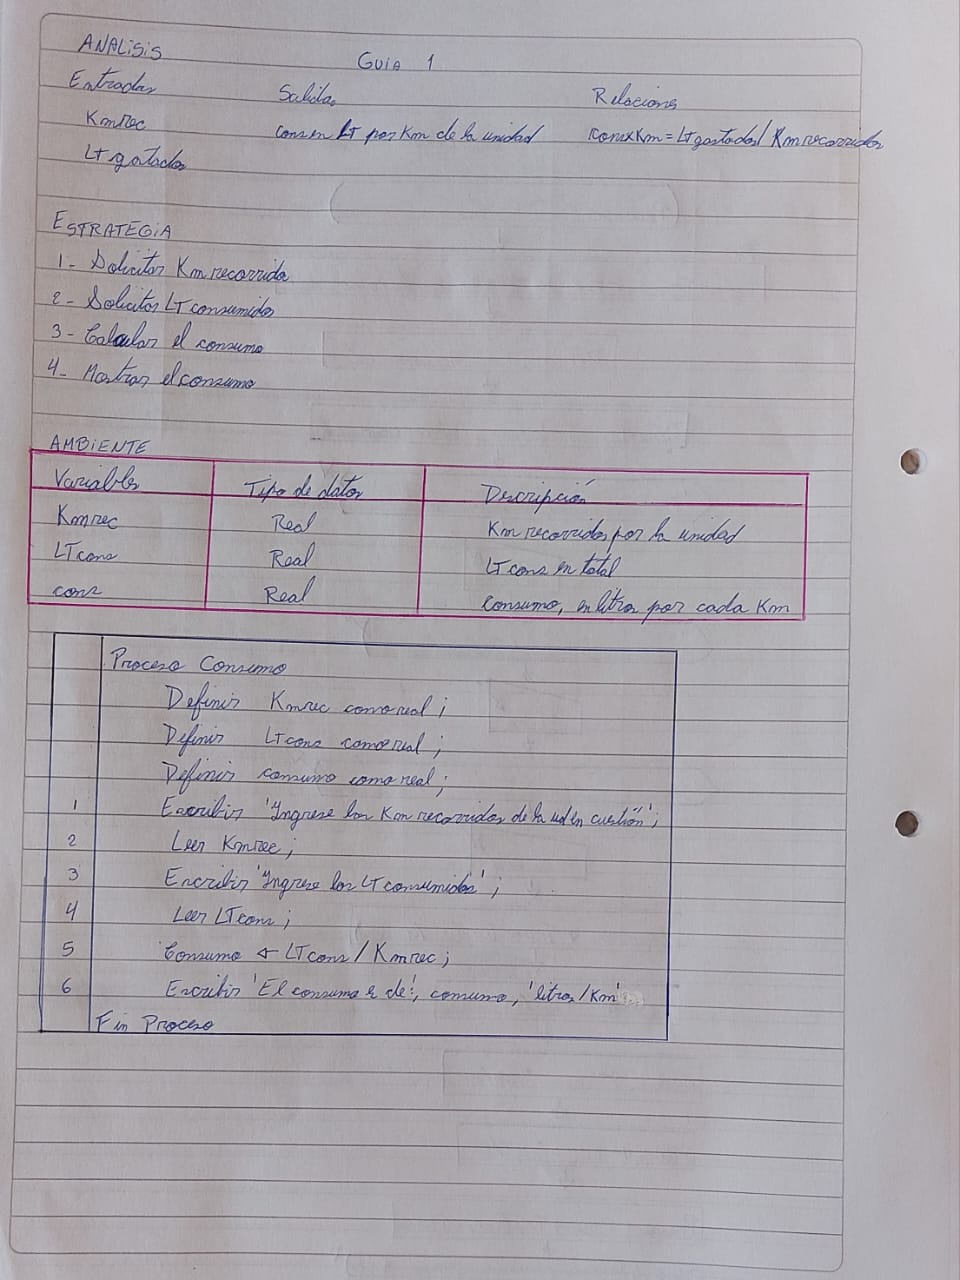 ANALISIS
GUIA 1
Entradas Salidas Relaciones
Kmrec cons en LT por Km de la unidad consxKm = LT gastados/ Km recorridos
LT gastados
ESTRATEGIA
1- Solicitar Km recorridos
2- Solicitar LT consumidos
3- Calcular el consumo
4- Mostrar el consumo
AMBIENTE
Variables Tipo de datos Descripción
Kmrec Real Km recorridos por la unidad
LTcons Real LT cons en total
cons Real Consumo, en litros por cada Km
Proceso Consumo
Definir Kmrec como real;
Definir LTcons como real;
Definir consumo como real;
1 Escribir 'Ingrese los Km recorridos de la ud en cuestión';
2 Leer Kmrec;
3 Escribir 'Ingrese los LT consumidos';
4 Leer LTcons;
5 Consumo ← LTcons / Kmrec;
6 Escribir 'El consumo es de:', consumo, 'litros/Km'
Fin Proceso